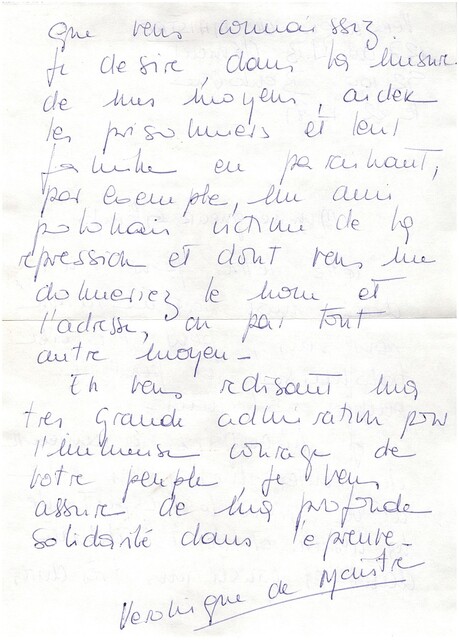 que vous connaissez.
Je desire, dans la mesure
de mes moyens, aider
les prisonniers et leur
famille en parrainant,
par exemple, un ami
polonais victime de la
répression et dont vous me
donneriez le nom et
l'adresse, ou par tout
autre moyen -
En vous redisant ma
très grande admiration pour
l'immense courage de
votre peuple je vous
assure de ma profonde
solidarité dans l'epreuve -
Veronique de Maistre